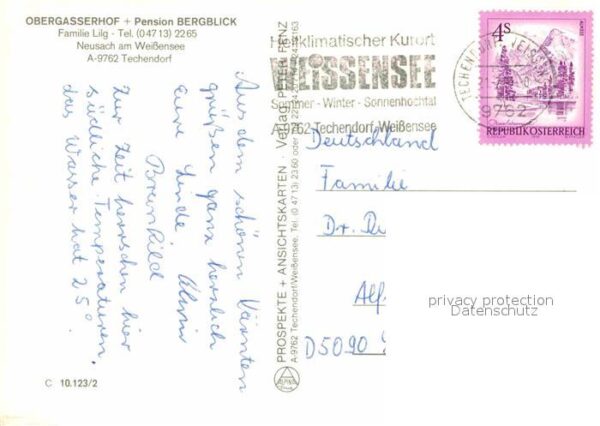 OBERGASSERHOF + Pension BERGBLICK
Familie Lilg - Tel. (0 4713) 2265
Neusach am Weißensee
A-9762 Techendorf
Aus dem schönen Kärnten
grüßen ganz herzlich
Eure Linde Almir
Brunhild
Zur Zeit herrschen hier
südliche Temperaturen.
das Wasser hat 25°
C 10.123/2
PROSPEKTE + ANSICHTSKARTEN · Verlag PETER FENZ
A-9762 Techendorf/Weißensee, Tel. (0 4713) 2360 oder
ALPINA
Heilklimatischer Kurort
WEISSENSEE
Sommer - Winter - Sonnenhochtal
A-9762 Techendorf, Weißensee
9762
4S
REPUBLIK ÖSTERREICH
Deutschland
Familie
Dr.
Alf.
D5090
privacy protection
Datenschutz